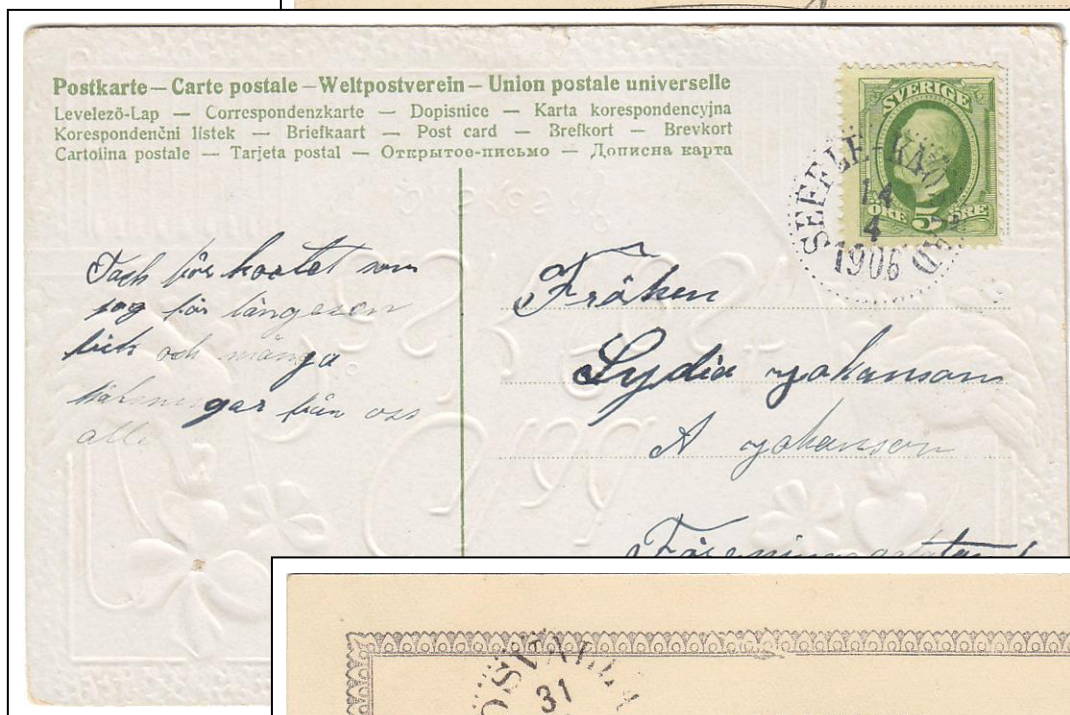 Postkarte — Carte postale — Weltpostverein — Union postale universelle
Levelezö-Lap — Correspondenzkarte — Dopisnice — Karta korespondencyjna
Korespondenční lístek — Briefkaart — Post card — Brefkort — Brevkort
Cartolina postale — Tarjeta postal — Открытое-письмо — Дописна карта
SVERIGE
ÖRE 5 ÖRE
SEFFLE
14
4
1906
Tack för kortet som
jag för längesen
fick och många
hälsningar från oss
alla
Fröken
Lydia Johanson
A Johanson
31